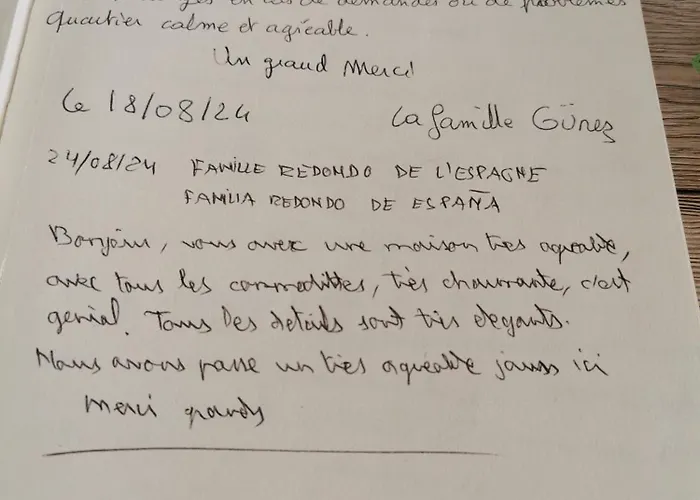 en cas de demandes ou de problèmes
quartier calme et agréable.
Un grand Merci
Le 18/08/24 La famille Günez
24/08/24 FAMILLE REDONDO DE L'ESPAGNE
FAMILIA REDONDO DE ESPAÑA
Bonjour, vous avez une maison très agréable,
avec tous les commodittes, très charmante, c'est
genial. Tous Des details sont très elegants.
Nous avons passe un très agréable jours ici
Merci